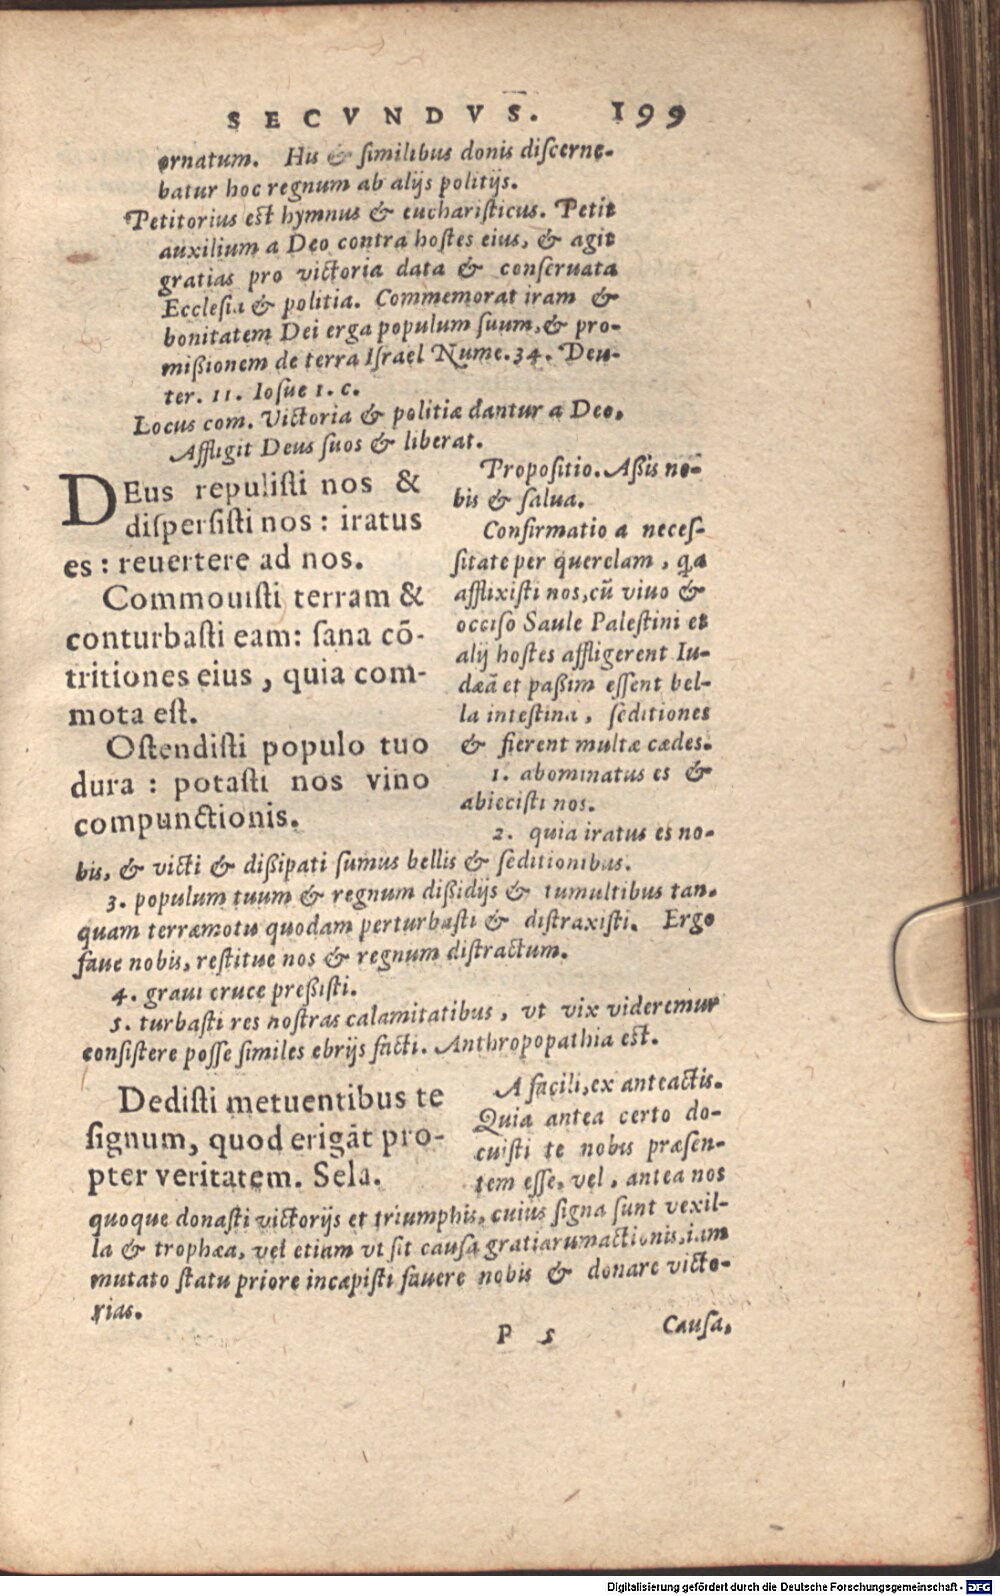 SECVNDVS. 199
ornatum. His & similibus donis discerne-
batur hoc regnum ab alijs politijs.
Petitorius est hymnus & eucharisticus. Petit
auxilium a Deo contra hostes eius, & agit
gratias pro victoria data & conseruata
Ecclesia & politia. Commemorat iram &
bonitatem Dei erga populum suum, & pro-
mißionem de terra Israel Nume. 34. Deu-
ter. 11. Iosue 1. c.
Locus com. Victoria & politiæ dantur a Deo.
Affligit Deus suos & liberat.
DEus repulisti nos &
dispersisti nos : iratus
es : reuertere ad nos.
Commouisti terram &
conturbasti eam: sana cõ-
tritiones eius, quia com-
mota est.
Ostendisti populo tuo
dura : potasti nos vino
compunctionis.
Propositio. Aßis no-
bis & salua.
Confirmatio a neces-
sitate per querelam, qa
afflixisti nos, cũ viuo &
occiso Saule Palestini et
alij hostes affligerent Iu-
dæã et paßim essent bel-
la intestina, seditiones
& fierent multæ cædes.
1. abominatus es &
abiecisti nos.
2. quia iratus es no-
bis, & victi & dißipati sumus bellis & seditionibus.
3. populum tuum & regnum dißidijs & tumultibus tan-
quam terræmotu quodam perturbasti & distraxisti. Ergo
faue nobis, restitue nos & regnum distractum.
4. graui cruce preßisti.
5. turbasti res nostras calamitatibus, vt vix videremur
consistere posse similes ebrijs facti. Anthropopathia est.
Dedisti metuentibus te
signum, quod erigãt pro-
pter veritatem. Sela.
A facili, ex anteactis.
Quia antea certo do-
cuisti te nobis præsen-
tem esse, vel, antea nos
quoque donasti victorijs et triumphis, cuius signa sunt vexil-
la & trophæa, vel etiam vt sit causa gratiarumactionis, iam
mutato statu priore incæpisti fauere nobis & donare victo-
rias.
P 5 Causa,
Digitalisierung gefördert durch die Deutsche Forschungsgemeinschaft - DFG